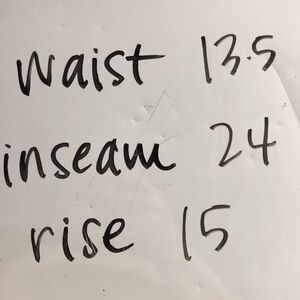 waist 13.5
inseam 24
rise 15